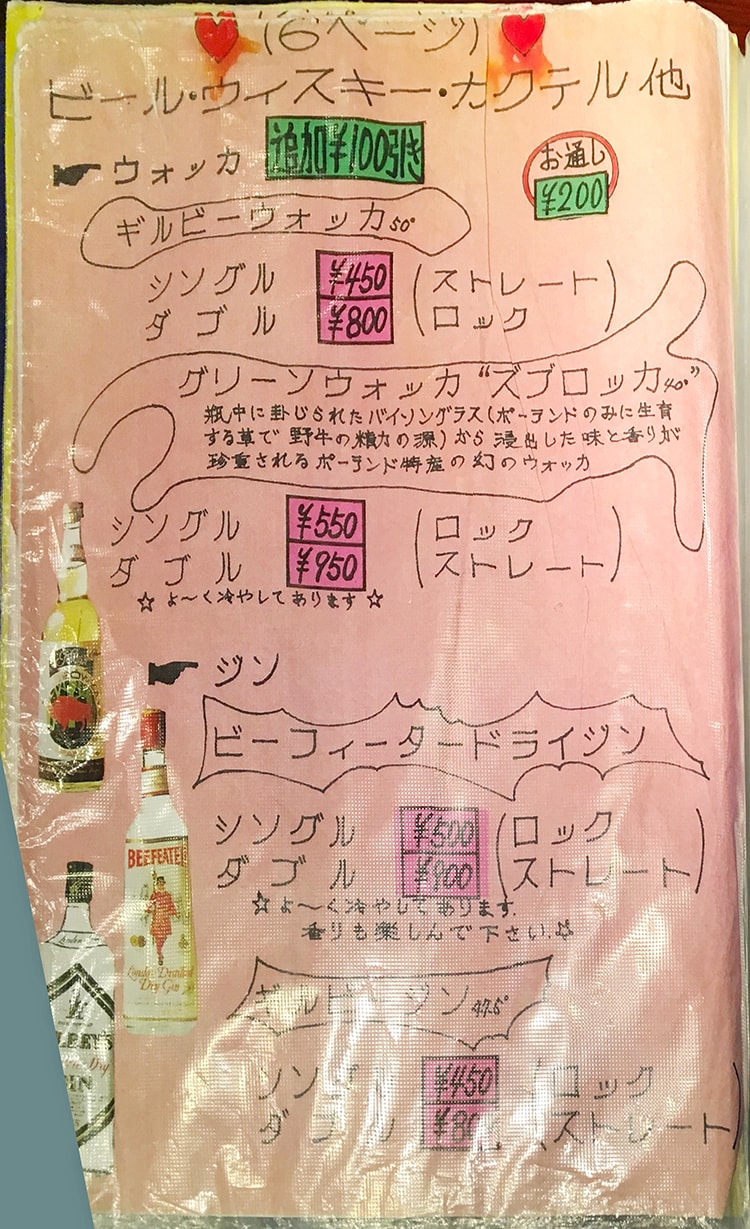 (6ページ)
ビール・ウィスキー・カクテル他
ウォッカ 追加¥100引き
お通し
¥200
ギルビーウォッカ50°
シングル ¥450 (ストレート
ダブル ¥800 ロック)
グリーンウォッカ“ズブロッカ40°”
瓶中に封じられたバイソングラス(ポーランドのみに生育
する草で 野牛の精力の源)から 浸出した味と香りが
珍重されるポーランド特産の幻のウォッカ
シングル ¥550 (ロック
ダブル ¥950 ストレート)
☆よ〜く冷やしてあります☆
ジン
ビーフィータードライジン
シングル ¥500 (ロック
ダブル ¥900 ストレート)
☆よ〜く冷やしてあります.
香りも楽しんで下さい.☆
BEEFEATER
London Distilled
Dry Gin
ギルビージン47.5°
シングル ¥450 (ロック
ダブル ストレート)